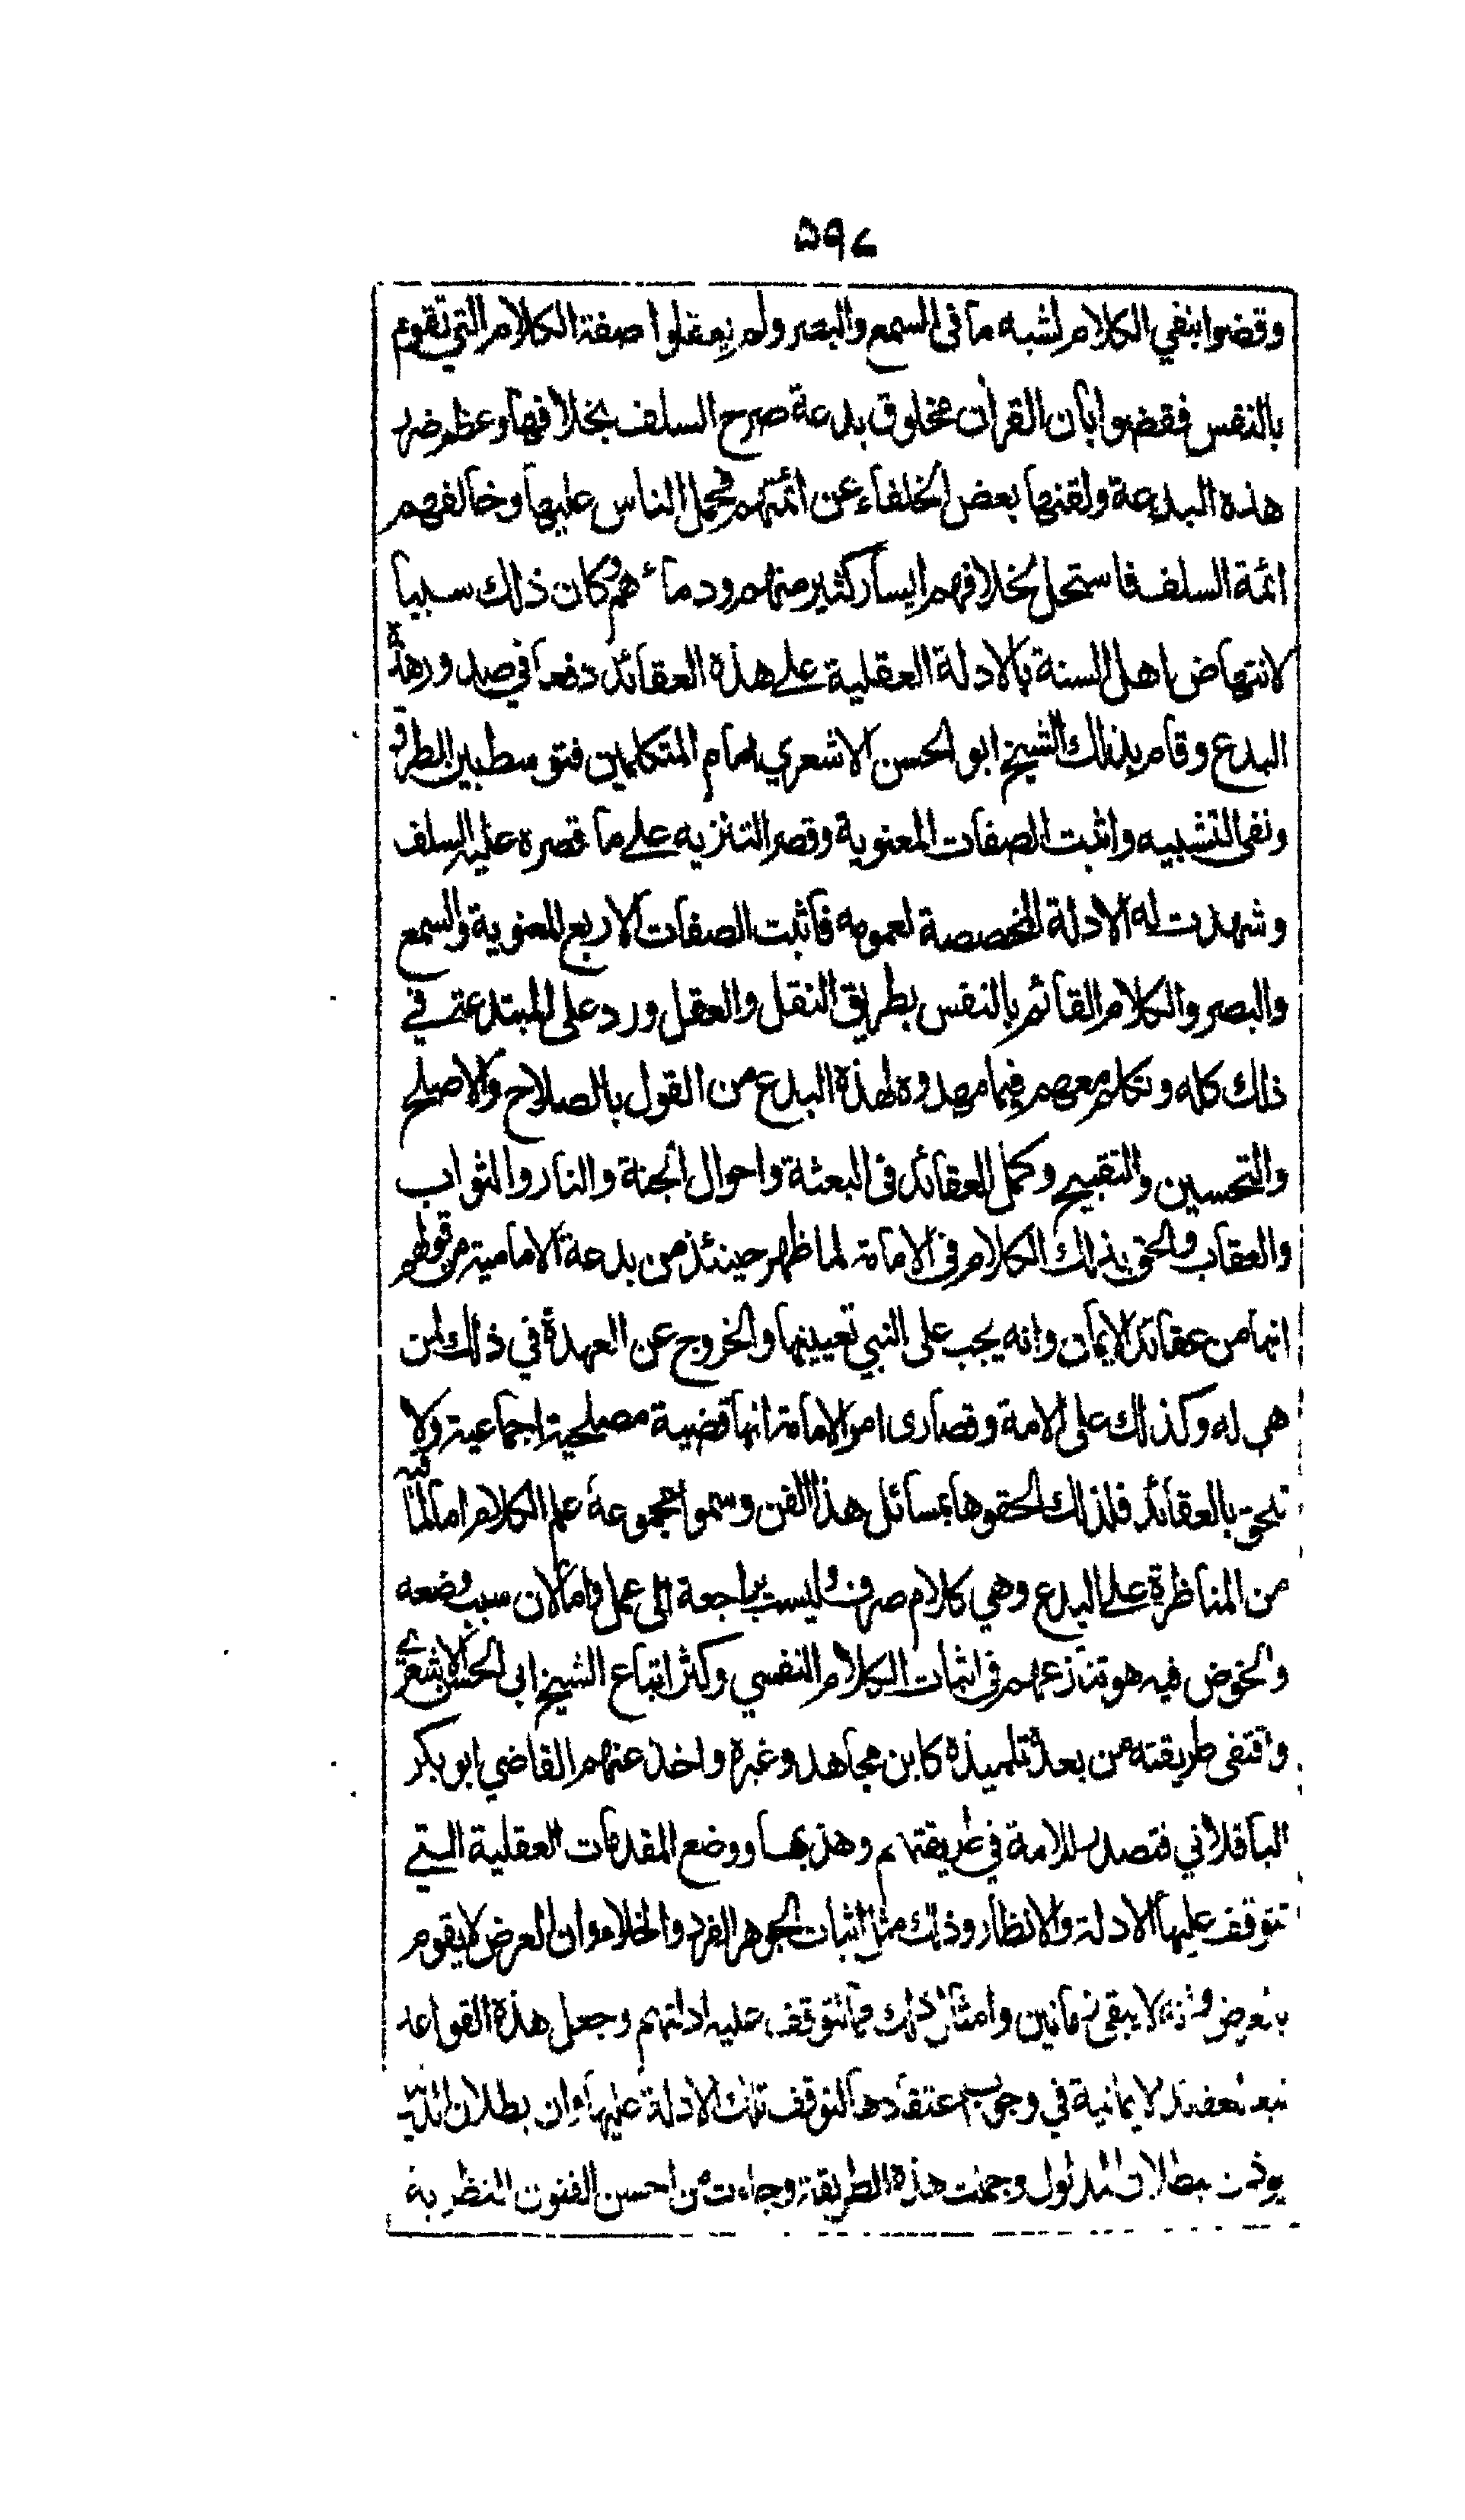 ۵۹۷
وقضوا بنفي الكلام لشبه ما في السمع والبصر ولم يعقلوا صفة الكلام التي تقوم
بالنفس فقضوا بان القران مخلوق بدعة صرح السلف بخلافها وعظم ضرر
هذه البدعة ولقنها بعض الخلفاء عن ائمتهم فحمل الناس عليها وخالفهم
ائمة السلف فاستحل لخلافهم ايسار كثير منهم ودماءهم وكان ذلك سببا
لانتهاض اهل السنة بالادلة العقلية على هذه العقائد دفعا في صدور هذه
البدع وقام بذلك الشيخ ابو الحسن الاشعري امام المتكلمين فتوسط بين الطرق
ونفى التشبيه واثبت الصفات المعنوية وقصر التنزيه على ما قصره عليه السلف
وشهدت له الادلة المخصصة لعمومه فاثبت الصفات الاربع المعنوية والسمع
والبصر والكلام القائم بالنفس بطريق النقل والعقل ورد على المبتدعة في
ذلك كله وتكلم معهم فيما مهدوه لهذه البدع من القول بالصلاح والاصلح
والتحسين والتقبيح وكمل العقائد في البعثة واحوال الجنة والنار والثواب
والعقاب والحق بذلك الكلام في الامامة لما ظهر حينئذ من بدعة الامامية من قولهم
انها من عقائد الايمان وانه يجب على النبي تعيينها والخروج عن العهدة في ذلك لمن
هي له وكذلك على الامة وقصارى امر الامامة انها قضية مصلحية اجماعية ولا
تلحق بالعقائد فلذلك الحقوها بمسائل هذا الفن وسموا مجموعه علم الكلام اما لما فيه
من المناظرة على البدع وهي كلام صرف وليست براجعة الى عمل واما لان سبب وضعه
والخوض فيه هو تنازعهم في اثبات الكلام النفسي وكثر اتباع الشيخ ابي الحسن الاشعري
واقتفى طريقته من بعده تلميذه كابن مجاهد وغيره واخذ عنهم القاضي ابو بكر
الباقلاني فتصدر للامامة في طريقتهم وهذبها ووضع المقدمات العقلية التي
تتوقف عليها الادلة والانظار وذلك مثل اثبات الجوهر الفرد والخلاء وان العرض لا يقوم
بالعرض وانه لا يبقى زمانين وامثال ذلك مما تتوقف عليه ادلتهم وجعل هذه القواعد
تبعا للعقائد الايمانية في وجوب اعتقادها لتوقف تلك الادلة عليها وان بطلان الدليل
يوذن ببطلان المدلول وجملت هذه الطريقة وجاءت من احسن الفنون النظرية